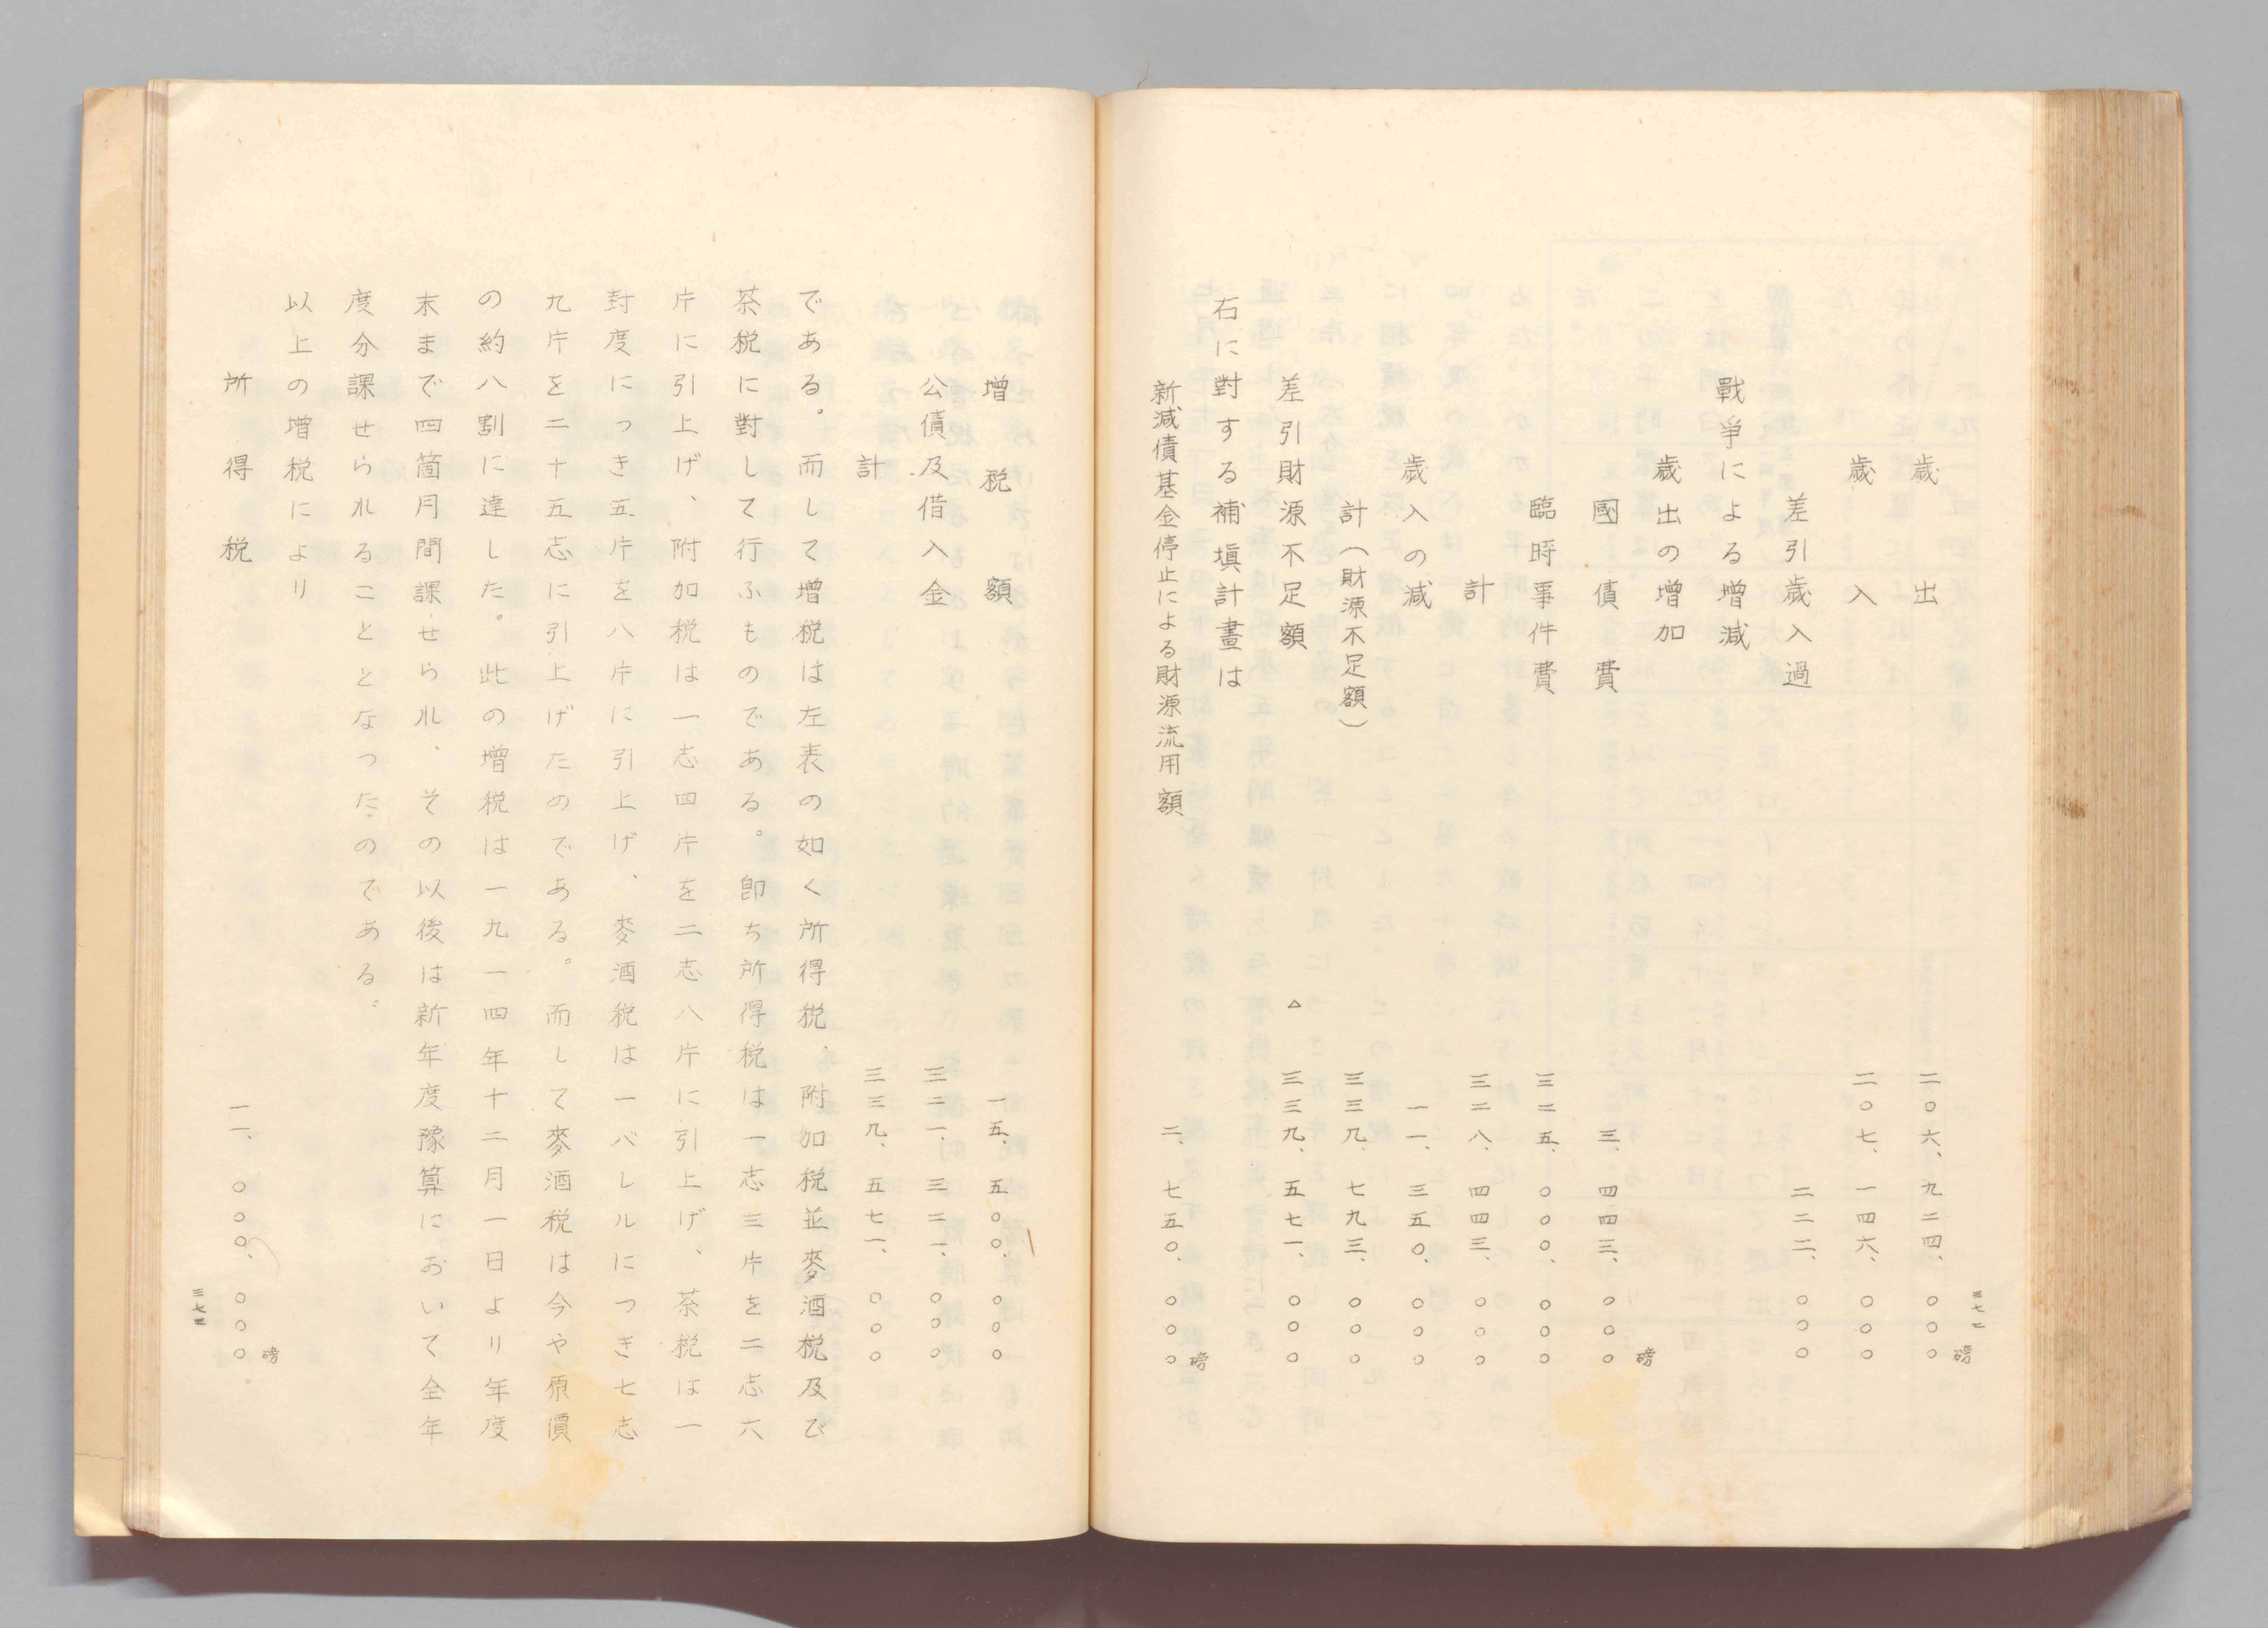 三七二
歳出 二〇六、九二四、〇〇〇磅
歳入 二〇七、一四六、〇〇〇
差引歳入過 二二二、〇〇〇
戰爭による增減
歳出の增加
國債費 三、四四三、〇〇〇磅
臨時事件費 三二五、〇〇〇、〇〇〇
計 三二八、四四三、〇〇〇
歳入の減 一一、三五〇、〇〇〇
計(財源不足額) 三三九、七九三、〇〇〇
差引財源不足額 △三三九、五七一、〇〇〇
右に對する補塡計畫は
新減債基金停止による財源流用額 二、七五〇、〇〇〇磅
增税額 一五、五〇〇、〇〇〇
公債及借入金 三二一、三二一、〇〇〇
計 三三九、五七一、〇〇〇
である。而して增税は左表の如く所得税、附加税並麥酒税及び
茶税に對して行ふものである。卽ち所得税は一志三片を二志六
片に引上げ、附加税は一志四片を二志八片に引上げ、茶税は一
封度につき五片を八片に引上げ、麥酒税は一バレルにつき七志
九片を二十五志に引上げたのである。而して麥酒税は今や原價
の約八割に達した。此の增税は一九一四年十二月一日より年度
末まで四箇月間課せられ、その以後は新年度豫算において全年
度分課せられることとなつたのである。
以上の增税により
所得税 一一、〇〇〇、〇〇〇磅
三七三